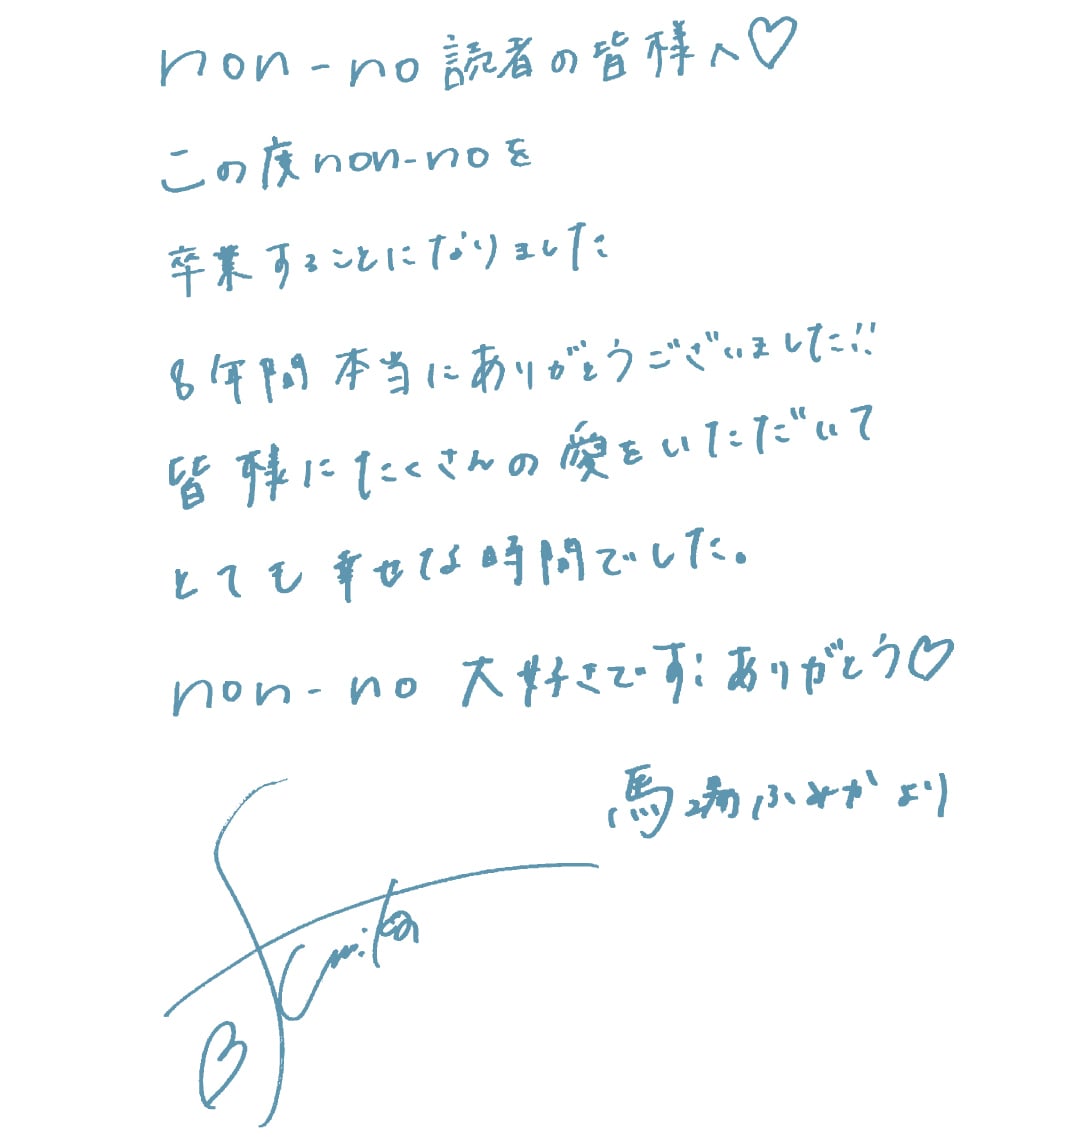 non-no読者の皆様へ♡
この度non-noを
卒業することになりました
8年間本当にありがとうございました!!
皆様にたくさんの愛をいただいて
とても幸せな時間でした。
non-no 大好きです! ありがとう♡
馬場ふみかより
Fumika